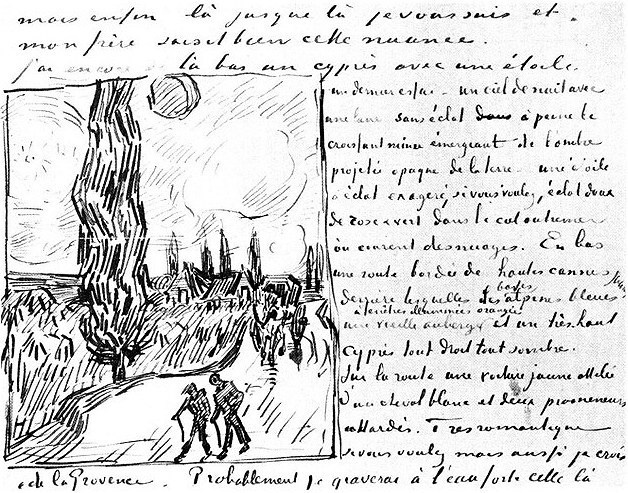 mais enfin là jusque là je vous suis et
mon frère saisit bien cette nuance.
J'ai encore de là bas un cyprès avec une étoile
un dernier essai – un ciel de nuit avec
une lune sans éclat à peine le
croissant mince émergeant de l'ombre
projetée opaque de la terre – une étoile
à éclat exagéré, si vous voulez, éclat doux
de rose & vert dans le ciel outremer
où courent des nuages. En bas
une route bordée de hautes cannes jaunes
derrière lesquelles les basses alpines bleues
une vieille auberge à fenêtres illuminées orangée et un très haut
cyprès tout droit tout sombre.
Sur la route une voiture jaune attelée
d'un cheval blanc et deux promeneurs
attardés. Très romantique
si vous voulez mais aussi je crois
de la Provence. Probablement je graverai à l'eau forte celle là